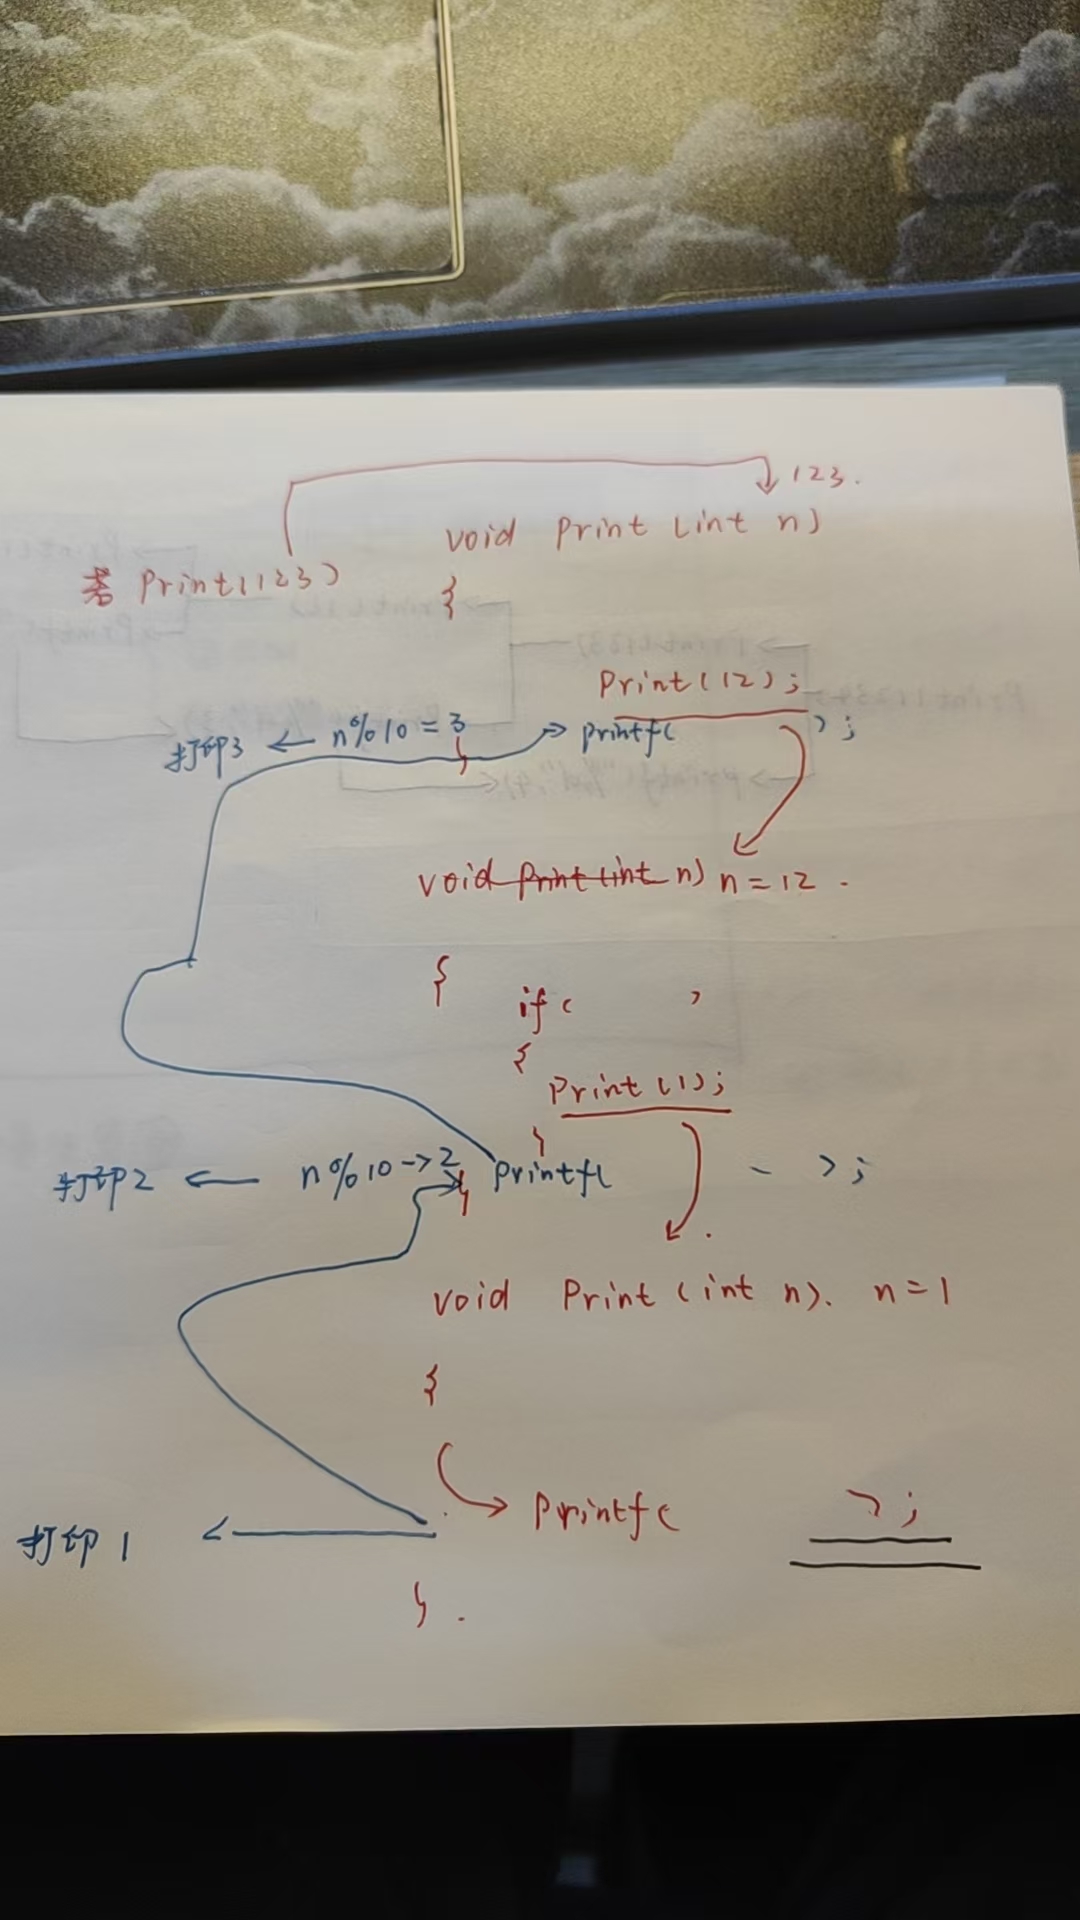 123.
void print (int n)
若 Print(123)
{
Print(12);
打印3 ← n%10 = 3 → printf( );
}
void print (int n) n = 12
{
if( )
{
Print (1);
}
打印2 ← n%10 → 2 printf( - );
}
void Print (int n). n = 1
{
→ Printf( );
打印1 ←
}